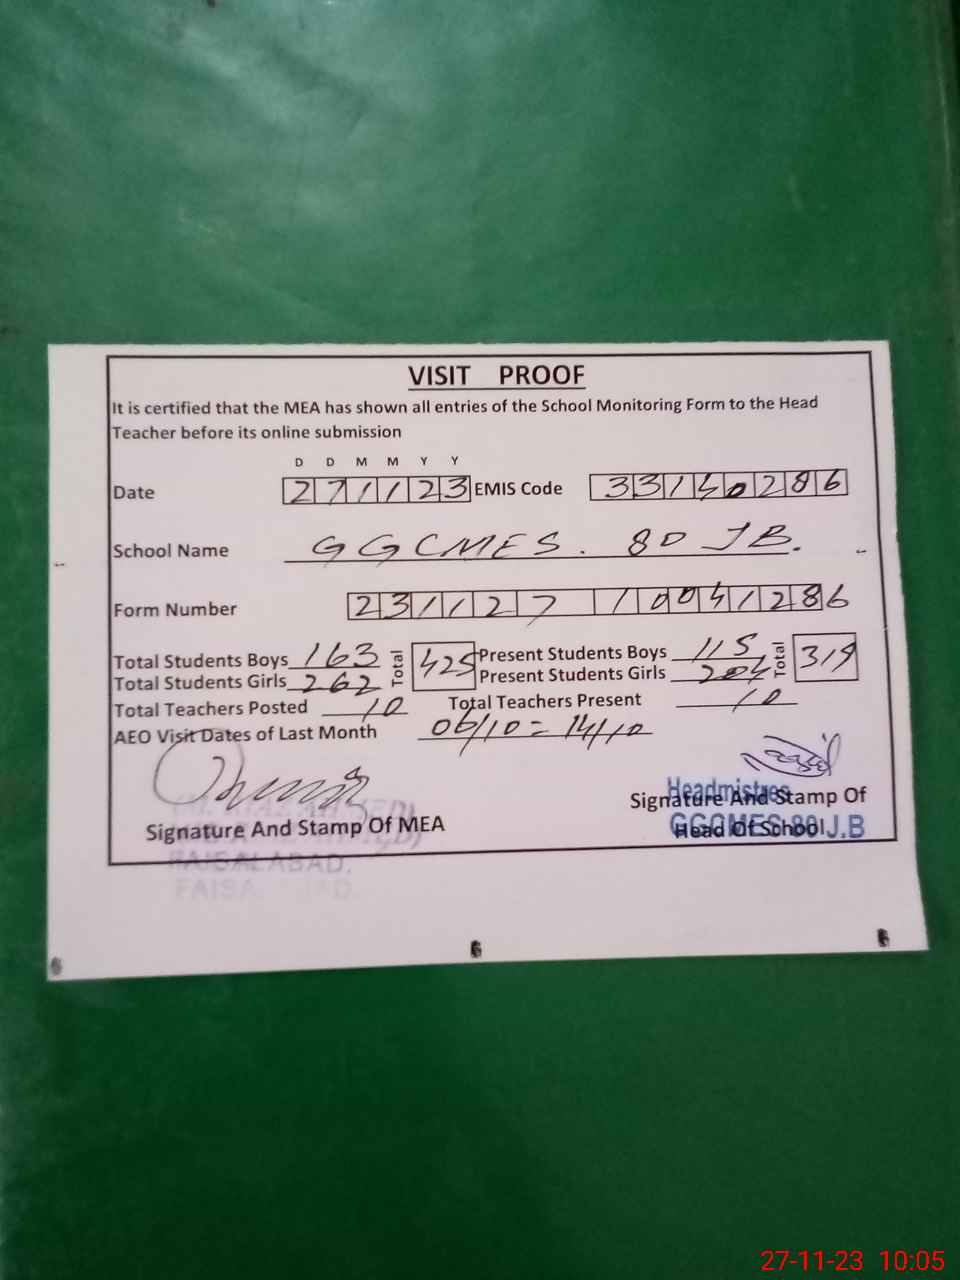 VISIT PROOF
It is certified that the MEA has shown all entries of the School Monitoring Form to the Head
Teacher before its online submission
D D M M Y Y
Date 271123 EMIS Code 33140286
School Name GGCMES. 80 JB.
Form Number 231127 10041286
Total Students Boys 163 Total 425 Present Students Boys 115 Total 319
Total Students Girls 262 Present Students Girls 204
Total Teachers Posted 10 Total Teachers Present 10
AEO Visit Dates of Last Month 06/10 = 14/10
Headmistres
Signature And Stamp Of
Signature And Stamp Of MEA
Head Of School
GGCMES 80 J.B
FAISALABAD.
6 6 6
27-11-23 10:05